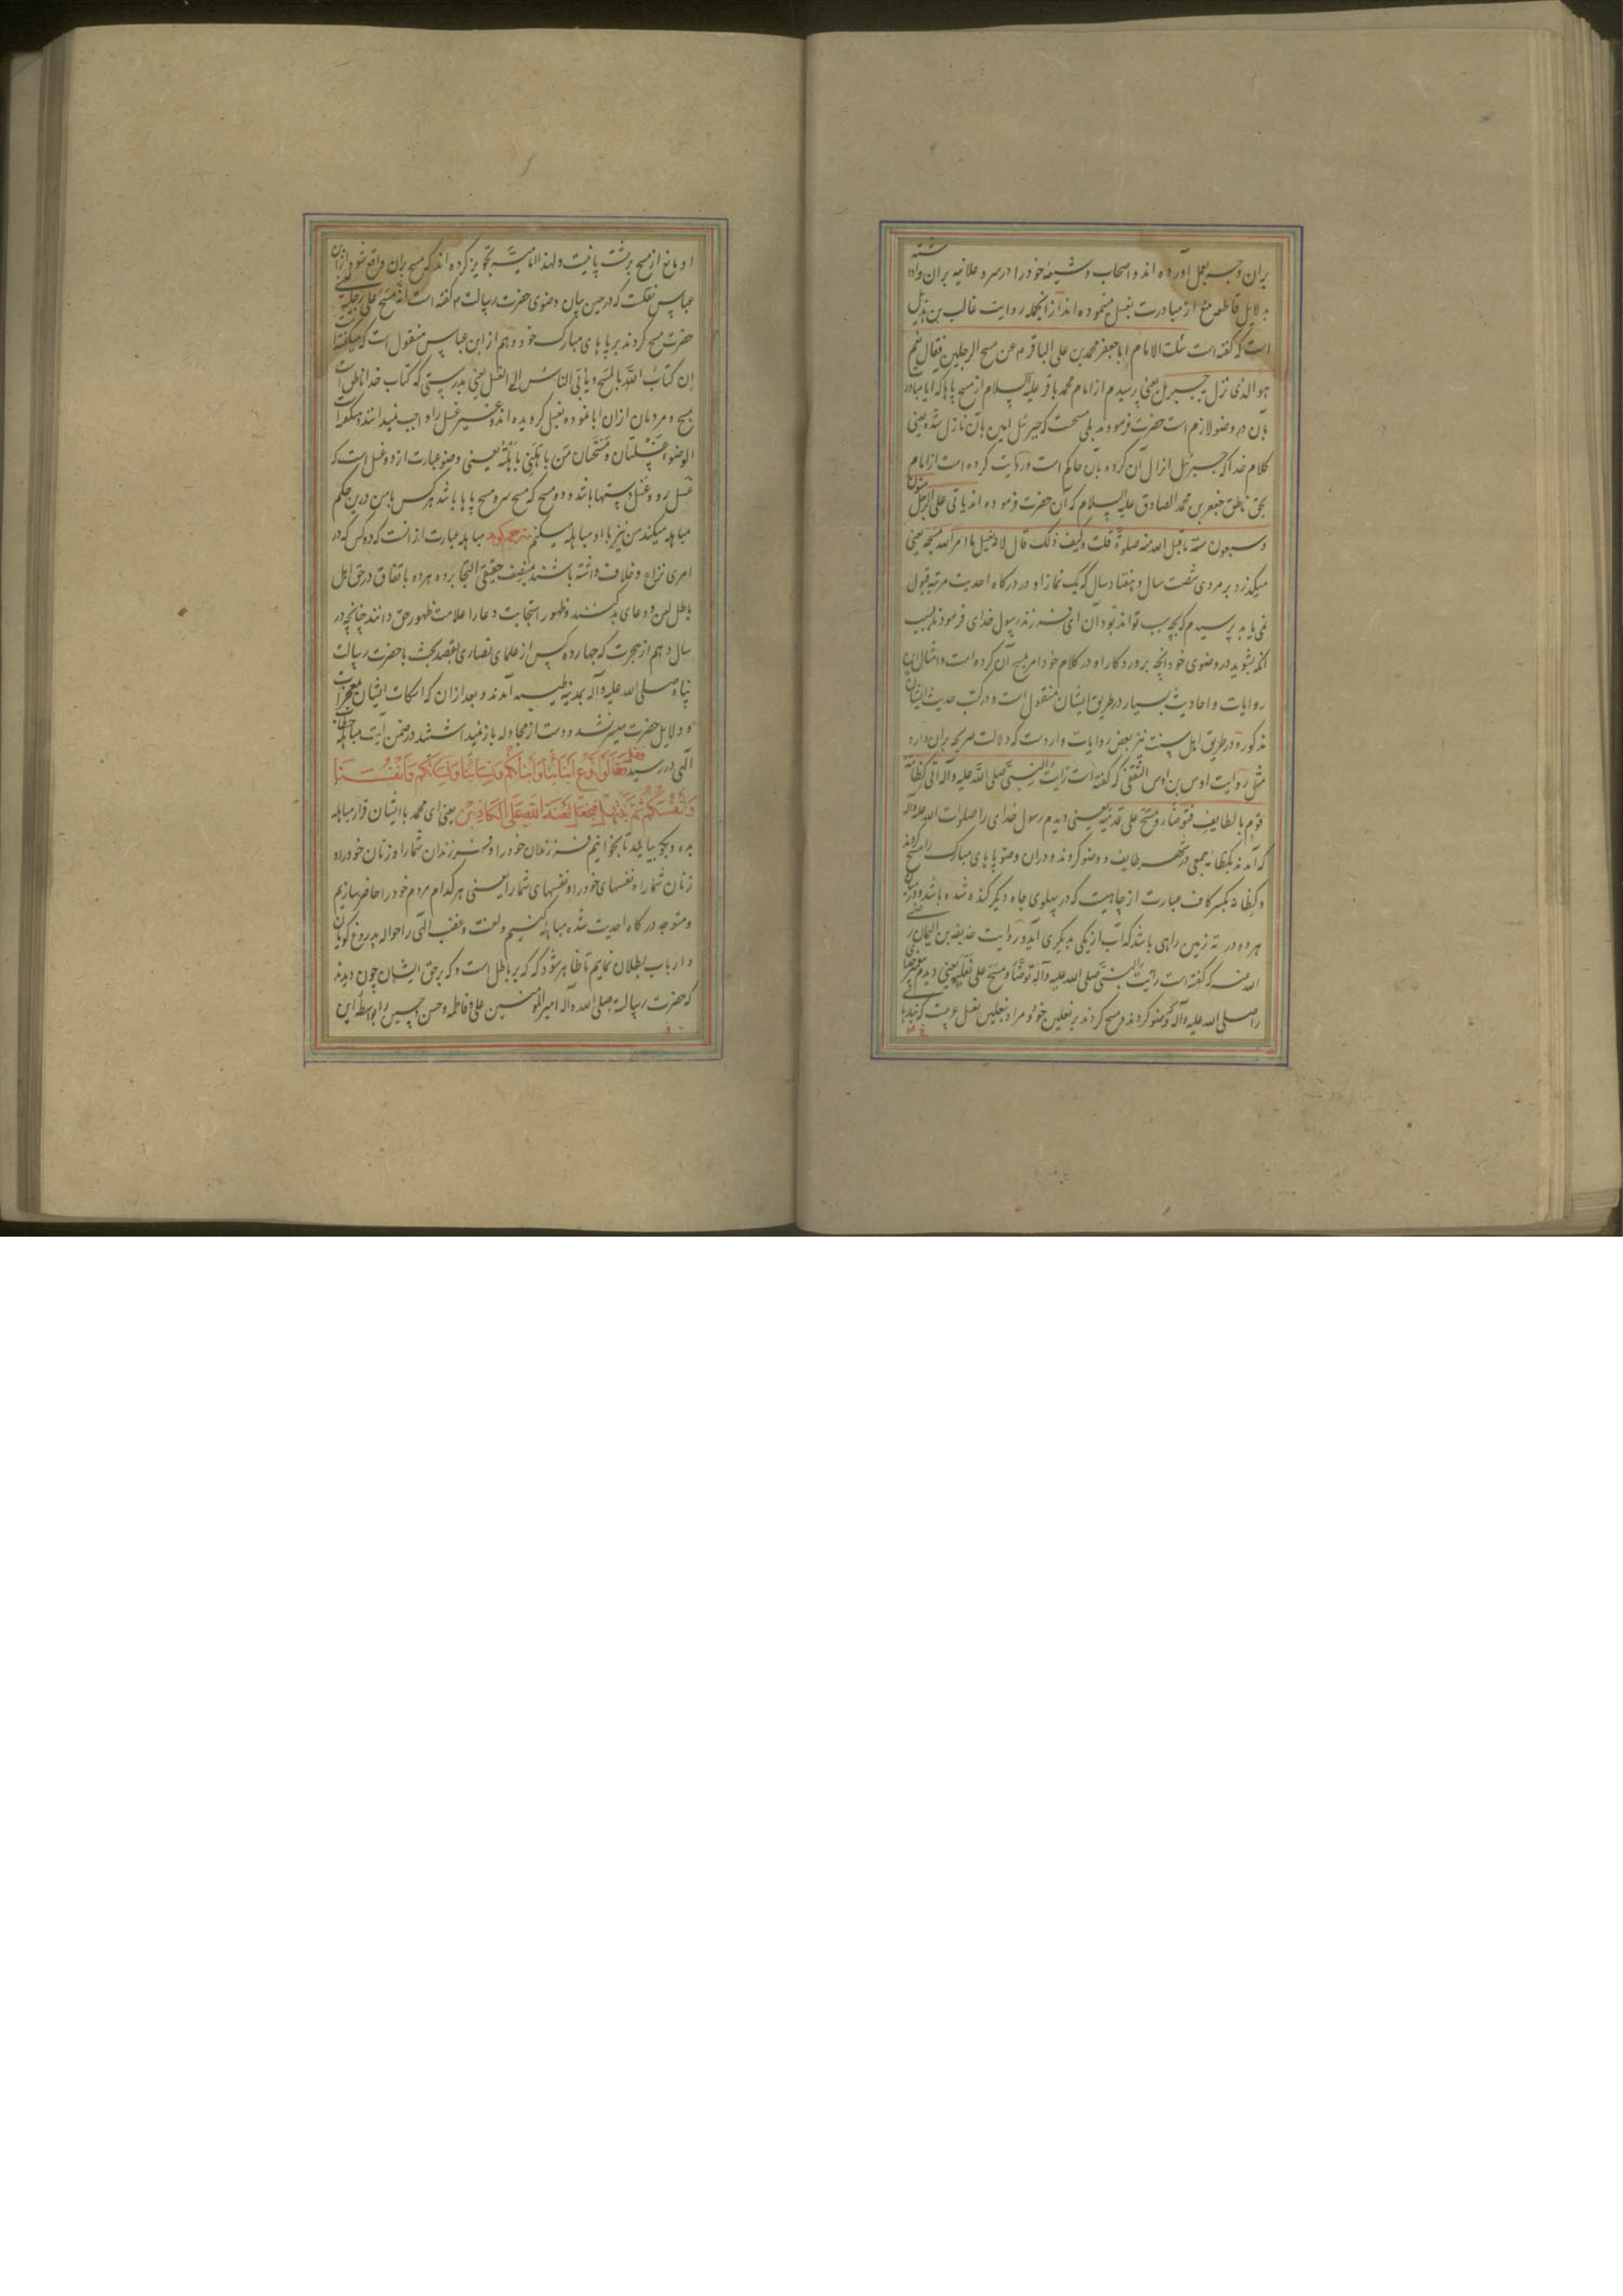 بران وجه بعمل آورده اند و اصحاب و شیعهٔ خود را در سر و علانیه بران واداشته
بدلایل قاطعه منع از مبادرت بغسل مینموده اند از انجمله روایت غالب بن هذیل
است که گفته است سئلت الامام اباجعفر محمد بن علی الباقر م عن مسح الرجلین فقال نعم
هو الذی نزل جبریل یعنی پرسیدم از امام محمد باقر علیه السلام از مسح پاها که ایا مبادرت
بان در وضو لازم است حضرت فرمودند بلی مسحست که جبرئل امین بآن نازل شده یعنی
کلام خدا که جبرئل انزال آن کرده بان حاکم است و روایت کرده است از امام
بحق ناطق جعفر بن محمد الصادق علیه السلام که آن حضرت فرموده اند یاتی علی الرجل ستون
و سبعون سنة ما قبل الله منه صلوة قلت و کیف ذلک قال لانه یغسل ما امر الله بمسحه یعنی
میگذرد بر مردی شصت سال و هفتاد سال که یک نماز او در درکاه احدیت مرتبه قبول
نمی یابد پرسیدم که بچه سبب تواند بود آن ای فرزند رسول خدای فرمودند بسبب
انکه بشوید در وضوی خود انچه پروردکار او در کلام خود امر بمسح آن کرده است و امثال این
روایات و احادیث بسیار در طریق ایشان منقول است و در کتب حدیث ایشان
مذکور و در طریق اهل سنت نیز بعض روایات واردست که دلالت صریحه بران دارد
مثل روایت اوس بن اوس الثقفی که گفته است رایت النبی صلی الله علیه و آله اتی کظامة
قوم بالطایف فتوضاء و مسح علی قدمیه یعنی دیدم رسول خدای را صلوات الله علیه و آله
که آمدند بکظامه جمعی در شهر طایف و وضو کردند و دران وضو پاهای مبارک را مسح کردند
و کظامه بکسر کاف عبارت از چاهیست که در پهلوی چاه دیگر کنده شده باشد و در میان
هر دو در ته زمین راهی باشد که آب از یکی بدیگری آید و روایت حذیفه بن الیمان رضی
الله عنه که گفته است رایت النبی صلی الله علیه و آله توضأ و مسح علی نعلیه یعنی دیدم پیغمبر خدا
را صلی الله علیه و آله که وضو کردند و مسح کردند بر نعلین خود و مراد بنعلین نعل عربیست که
او مانع از مسح بر پشت پا نیست و لهذا امامیه تجویز کرده اند که مسح بران واقع شود و از ابن
عباس نقلست که در حین بیان وضوی حضرت رسالت م گفته است انه مسح علی رجلیه یعنی
حضرت مسح کردند بر پاهای مبارک خود و هم از ابن عباس منقول است که میگفته است
ان کتاب الله بالمسح و یأبی الناس الا الغسل یعنی بدرستی که کتاب خدا ناطق است
بمسح و مردمان ازان ابا نموده بغسل گرویده اند و غیر غسل را واجب نمیدانند و میگفته است
الوضوء غسلتان و مسحتان من باهلنی باهلته یعنی وضو عبارت از دو غسل است که
غسل رو و غسل دستها باشد و دو مسح که مسح سر و مسح پاها باشد هر کس با من درین حکم
مباهله میکند من نیز با او مباهله میکنم مترجم گوید مباهله عبارت از انست که دو کس که در
امری نزاع و خلاف داشته باشند بمنصف حقیقی التجا برده هر دو باتفاق در حق اهل
باطل لعن و دعای بد کنند و ظهور استجابت دعا را علامت ظهور حق دانند چنانچه در
سال دهم از هجرت که چهارده کس از علمای نصاری بقصد بحث با حضرت رسالت
پناه صلی الله علیه و آله بمدینه طیبه آمدند و بعد ازان که اسکات ایشان بمعجزات
و دلایل حضرت میسر نشد و دست از مجادله باز نمیداشتند در ضمن آیت مباهله خطاب
آلهی در رسید فقل تعالوا ندع ابنائنا و ابنائکم و نسائنا و نسائکم و انفسنا
و انفسکم ثم نبتهل فنجعل لعنة الله علی الکاذبین یعنی ای محمد با ایشان قرار مباهله
بده و بگو بیائید تا بخوانیم فرزندان خود را و فرزندان شما را و زنان خود را و
زنان شما را و نفسهای خود را و نفسهای شما را یعنی هر کدام مردم خود را حاضر سازیم
و متوجه درکاه احدیت شده مباهله کنیم و لعنت و غضب الهی را حواله بدروغ گویان
و ارباب بطلان نمایم تا ظاهر شود که که بر باطل است و که بر حق ایشان چون دیدند
که حضرت رسالت صلی الله و آله امیر المومنین علی و فاطمه و حسن و حسین را بواسطه این